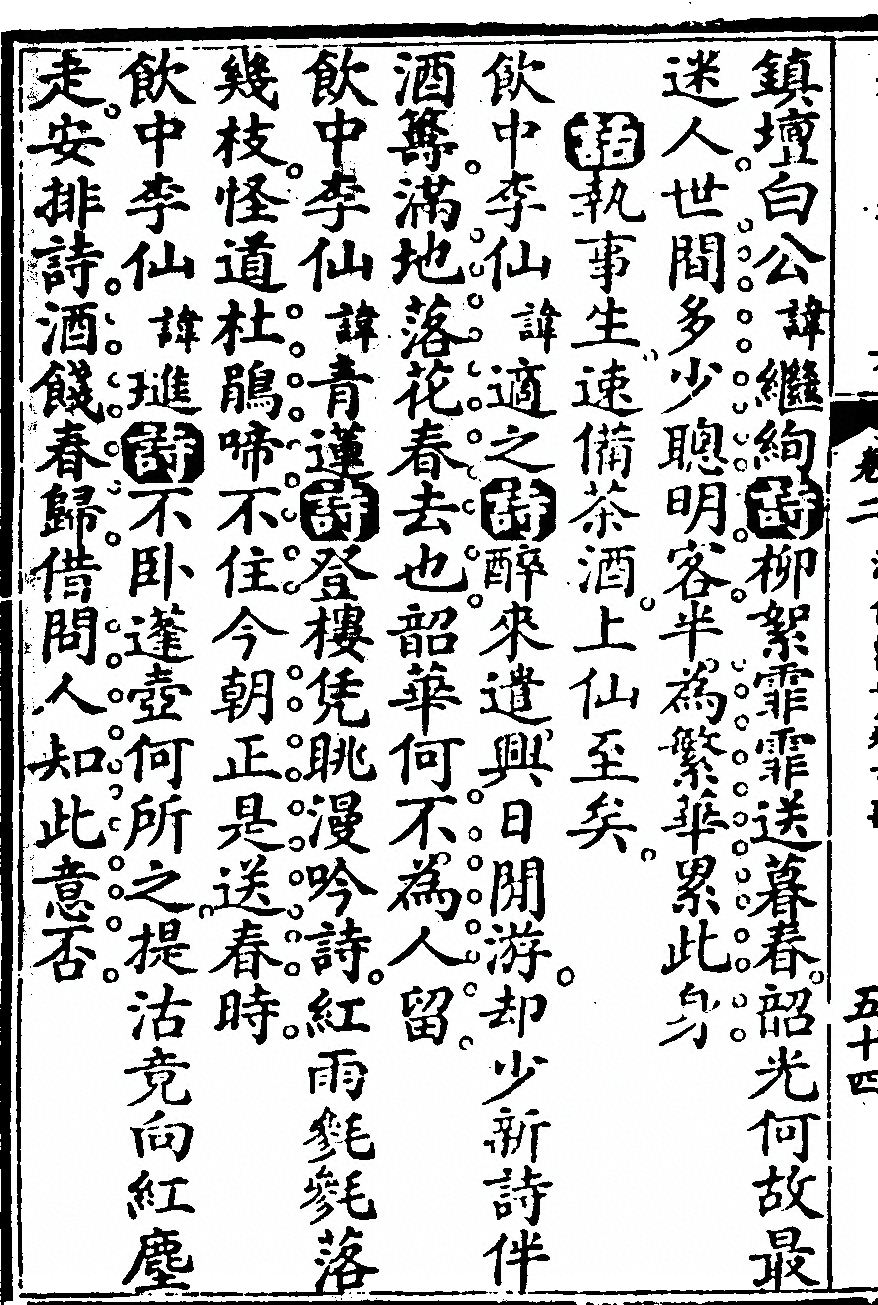 鎮壇白公諱繼絢詩柳絮霏霏送暮春韶光何故最
迷人世間多少聰明客半為繁華累此身
話執事生速備茶酒上仙至矣
飲中李仙諱適之詩醉來遣興日閒游却少新詩伴
酒篘滿地落花春去也韶華何不為人留
飲中李仙諱青蓮詩登樓凭眺漫吟詩紅雨毿毿落
幾枝怪道杜鵑啼不住今朝正是送春時
飲中李仙諱璡詩不卧蓬壺何所之提沽竟向紅塵
走安排詩酒餞春歸借問人知此意否
卷二
五十四